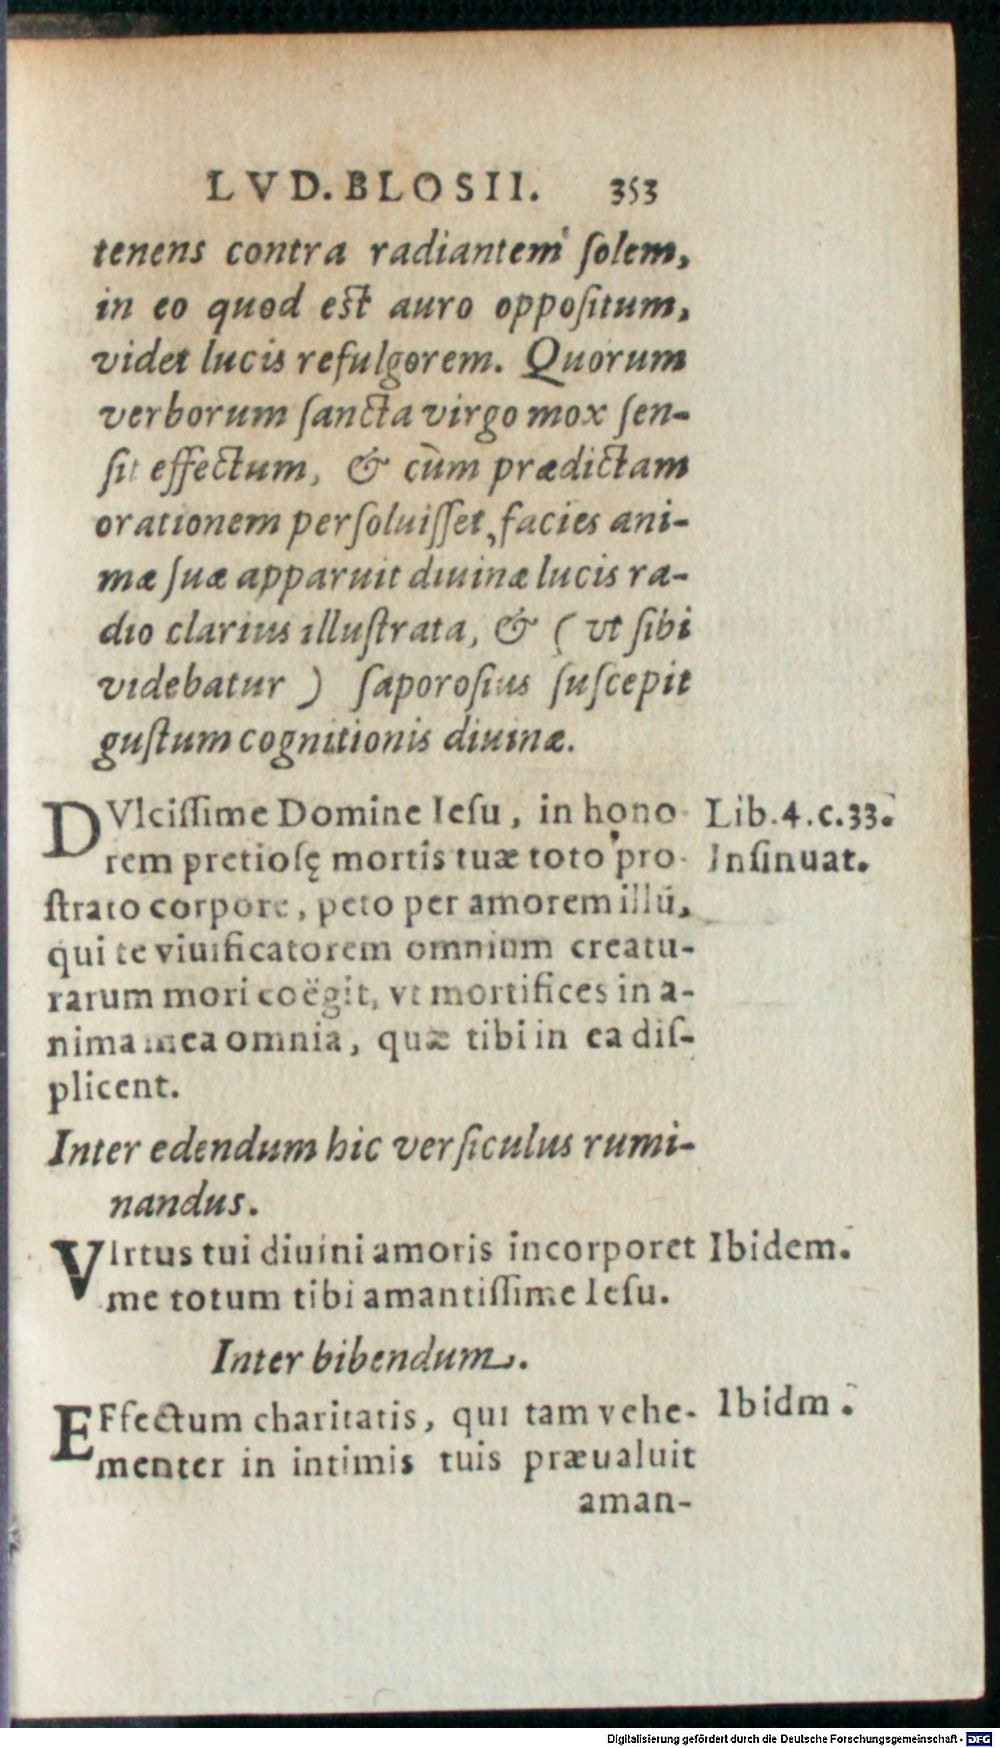 LVD. BLOSII. 353
tenens contra radiantem ſolem,
in eo quod est auro oppoſitum,
videt lucis refulgorem. Quorum
verborum ſancta virgo mox ſen-
ſit effectum, & cùm prædictam
orationem perſoluiſſet, facies ani-
mæ ſuæ apparuit diuinæ lucis ra-
dio clarius illuſtrata, & ( vt ſibi
videbatur ) ſaporoſius ſuſcepit
guſtum cognitionis diuinæ.
DVlciſſime Domine Ieſu, in hono- Lib. 4. c. 33.
rem pretioſę mortis tuæ toto pro- Inſinuat.
ſtrato corpore, peto per amorem illū,
qui te viuificatorem omnium creatu-
rarum mori coëgit, vt mortifices in a-
nima mea omnia, quæ tibi in ea diſ-
plicent.
Inter edendum hic verſiculus rumi-
nandus.
VIrtus tui diuini amoris incorporet Ibidem.
me totum tibi amantiſſime Ieſu.
Inter bibendum.
EFfectum charitatis, qui tam vehe- Ibidm.
menter in intimis tuis præualuit
aman-
Digitalisierung gefördert durch die Deutsche Forschungsgemeinschaft - DFG